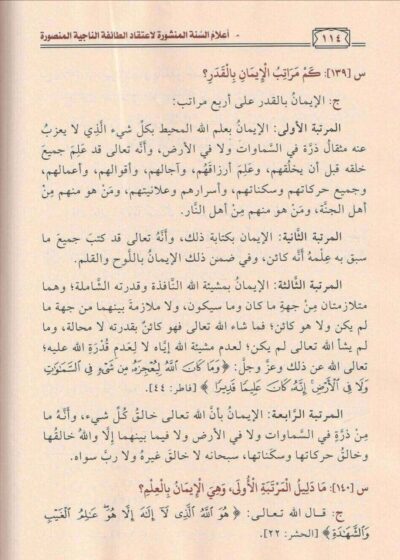 ١١٤
أعلام السنة المنشورة لاعتقاد الطائفة الناجية المنصورة
س [١٣٩]: كَمْ مَرَاتِبُ الْإِيمَانِ بِالْقَدَرِ؟
ج: الإيمانُ بالقدر على أربع مراتب:
المرتبة الأولى: الإيمانُ بعلم الله المحيط بكلِّ شيء الَّذي لا يعزبُ
عنه مثقالُ ذرَّة في السَّماوات ولا في الأرض، وأنَّه تعالى قد عَلِمَ جميعَ
خلقه قبل أن يخلُقهم، وعَلِمَ أرزاقَهُم، وآجالهم، وأقوالهم، وأعمالهم،
وجميع حركاتهم وسكناتهم، وأسرارهم وعلانيتهم، ومَنْ هو منهم مِنْ
أهل الجنَّة، ومَنْ هو منهم مِنْ أهل النَّار.
المرتبة الثَّانية: الإيمان بكتابة ذلك، وأنَّه تعالى قد كتبَ جميعَ ما
سبق به عِلْمهُ أنَّه كائن، وفي ضمن ذلك الإيمان باللَّوح والقلم.
المرتبة الثَّالثة: الإيمانُ بمشيئة الله النَّافذة وقدرته الشَّاملة؛ وهما
متلازمتان مِنْ جهةِ ما كان وما سيكون، ولا ملازمةَ بينهما من جهة ما
لم يكن ولا هو كائن؛ فما شاء الله تعالى فهو كائنٌ بقدرته لا محالة، وما
لم يشأ الله تعالى لم يكن؛ لعدم مشيئة الله إيَّاه لا لِعدمِ قُدْرَةِ الله عليه؛
تعالى الله عن ذلك وعزَّ وجلَّ: ﴿وَمَا كَانَ اللَّهُ لِيُعْجِزَهُ مِن شَيْءٍ فِي السَّمَٰوَٰتِ
وَلَا فِي الْأَرْضِ إِنَّهُ كَانَ عَلِيمًا قَدِيرًا﴾ [فاطر: ٤٤].
المرتبة الرَّابعة: الإيمانُ بأنَّ الله تعالى خالقُ كُلِّ شيء، وأنَّه ما
مِنْ ذرَةٍ في السَّماوات ولا في الأرض ولا فيما بينهما إلَّا واللهُ خالقُها
وخالقُ حركاتها وسكَناتها، سبحانه لا خالقَ غيرهُ ولا ربَّ سواه.
س [١٤٠]: مَا دَلِيلُ الْمَرْتَبَةِ الْأُولَى، وَهِيَ الْإِيمَانُ بِالْعِلْمِ؟
ج: قـال الله تعـالـى: ﴿هُوَ اللَّهُ الَّذِي لَا إِلَٰهَ إِلَّا هُوَ عَٰلِمُ الْغَيْبِ
وَالشَّهَٰدَةِ﴾ [الحشر: ٢٢].